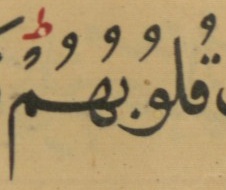 قُلُوبُهُمْ ۖ ط